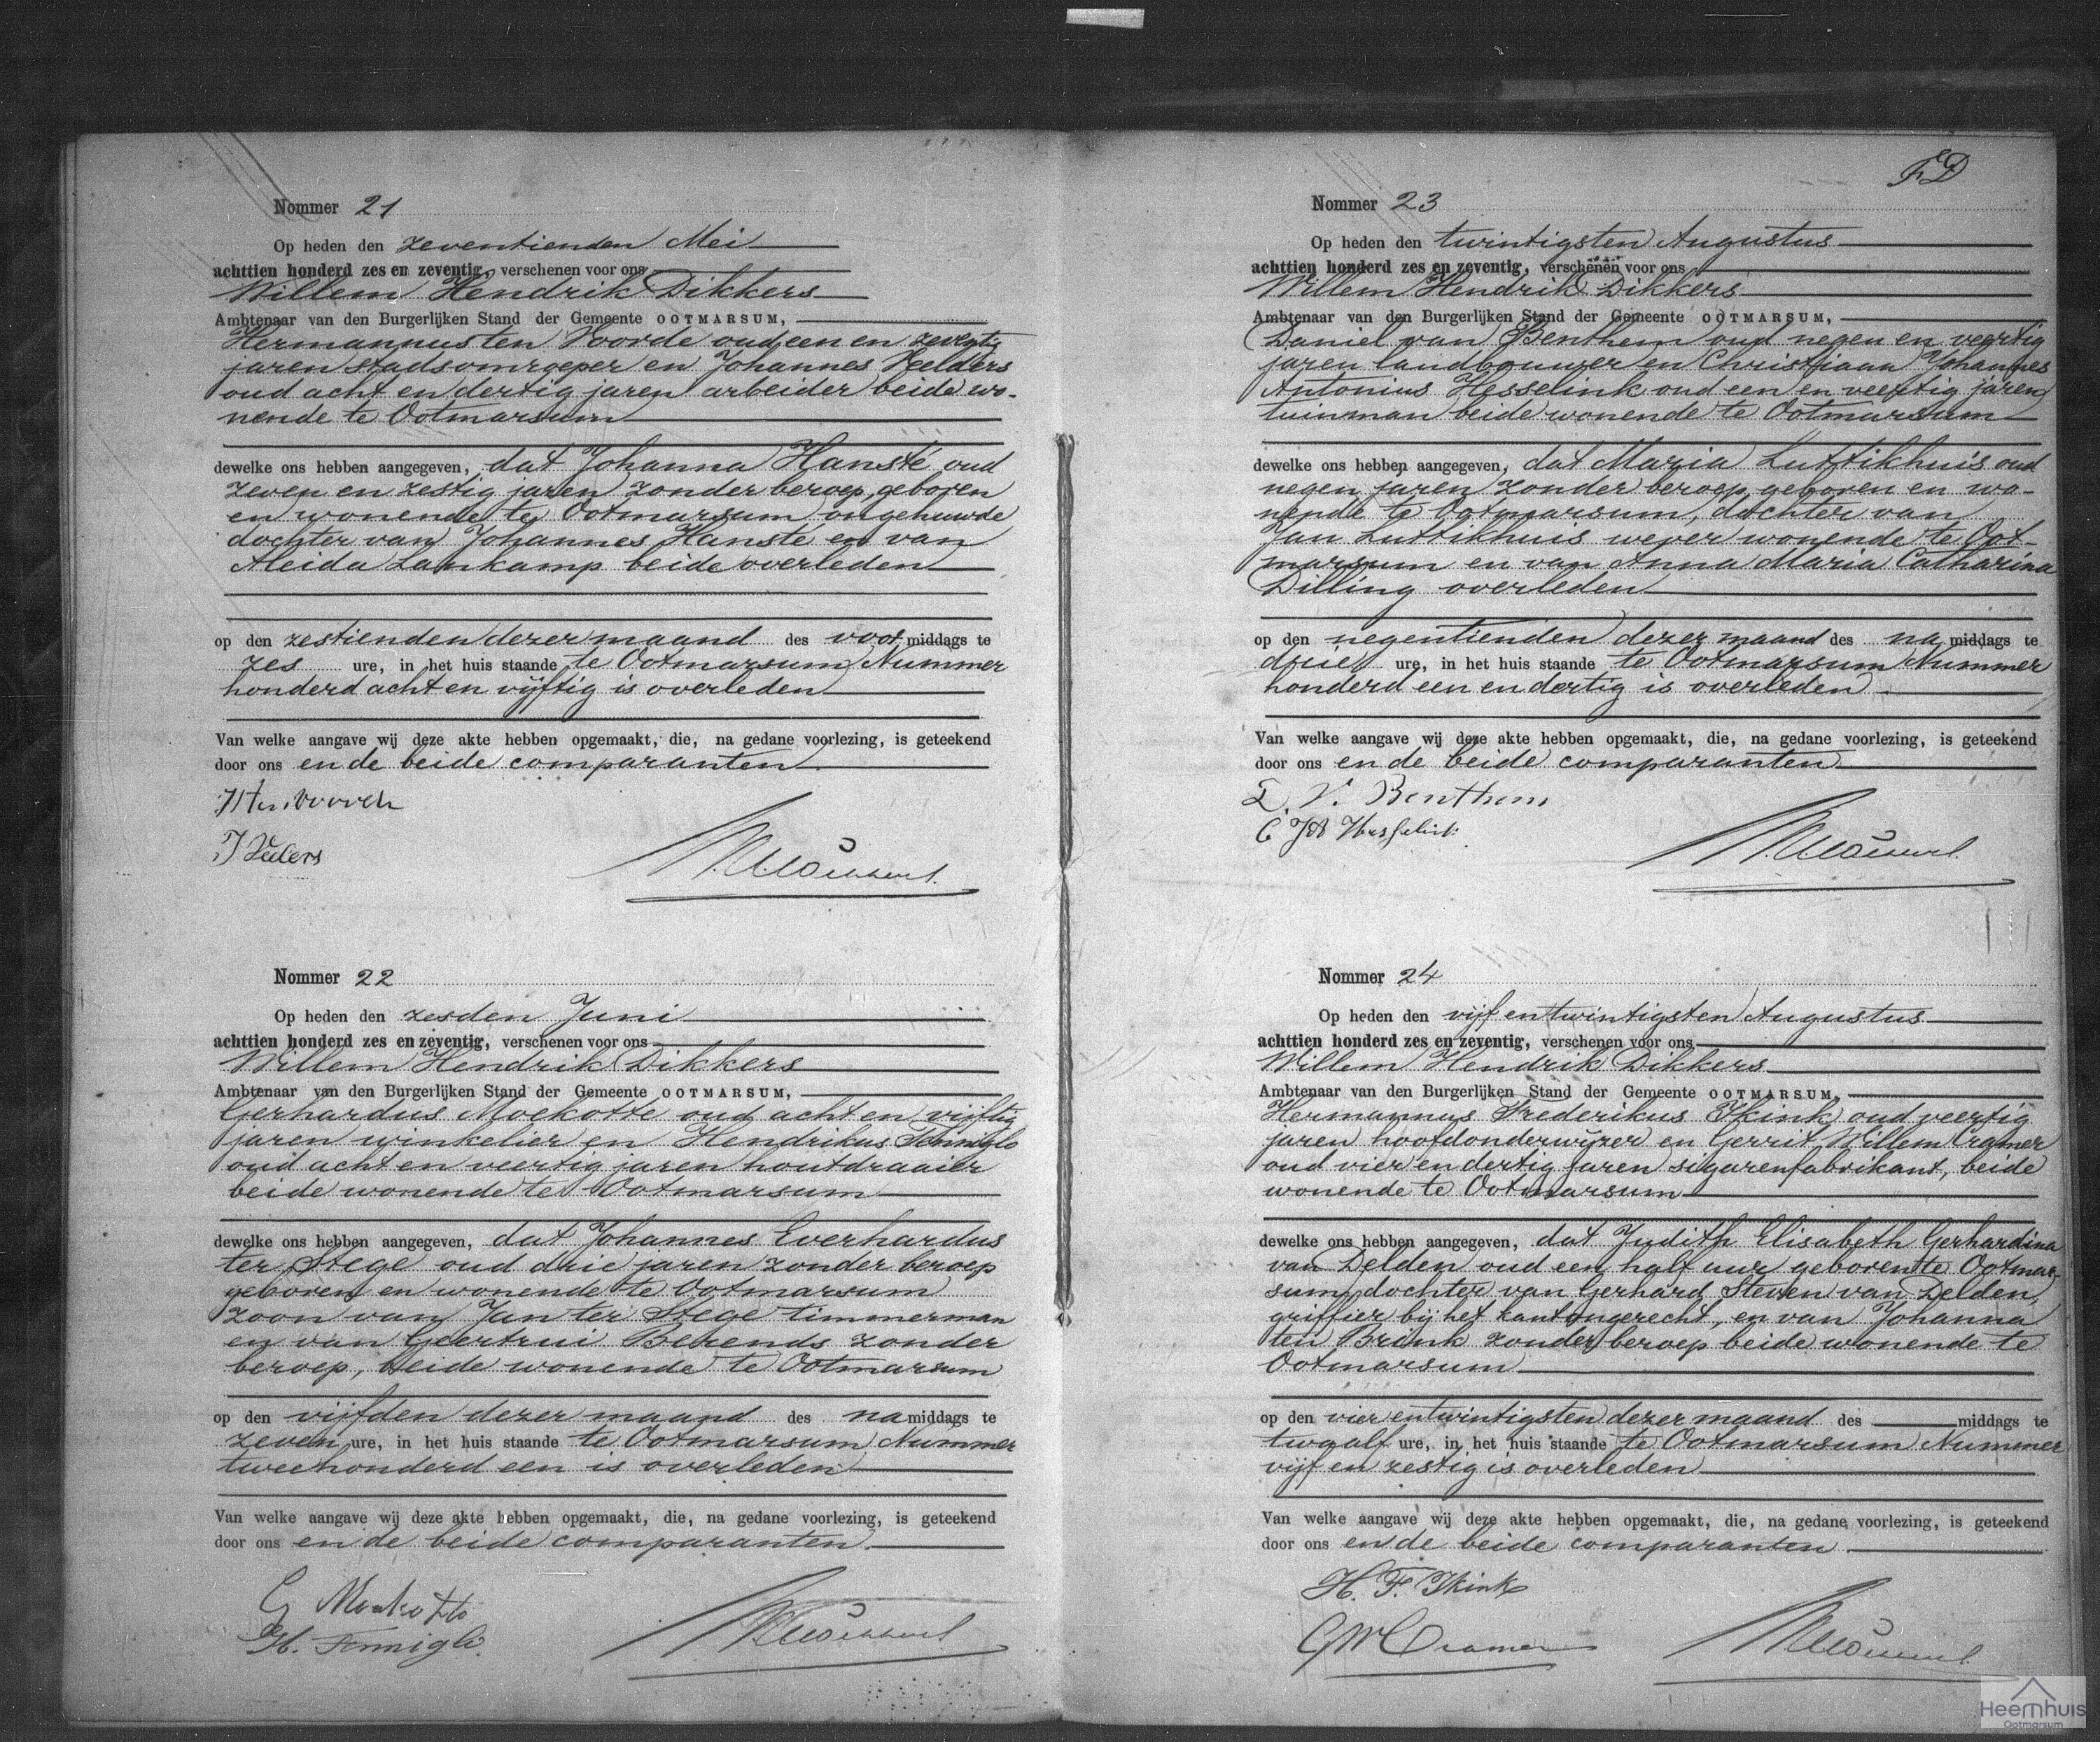 Nommer 21
Op heden den zeventienden Mei
achttien honderd zes en zeventig, verschenen voor ons
Willem Hendrik Dikkers
Ambtenaar van den Burgerlijken Stand der Gemeente OOTMARSUM,
Hermannus ten Voorde oud een en zeventig
jaren stadsomroeper en Johannes
oud acht en dertig jaren arbeider beide wo-
nende te Ootmarsum
dewelke ons hebben aangegeven, dat Johanna Hansté oud
zeven en zestig jaren zonder beroep, geboren
en wonende te Ootmarsum ongehuwde
dochter van Johannes Hanste en van
Aleida Lankamp beide overleden
op den zestienden dezer maand des voor middags te
zes ure, in het huis staande te Ootmarsum Nummer
honderd acht en vijftig is overleden
Van welke aangave wij deze akte hebben opgemaakt, die, na gedane voorlezing, is geteekend
door ons en de beide comparanten
Nommer 22
Op heden den zesden Juni
achttien honderd zes en zeventig, verschenen voor ons
Willem Hendrik Dikkers
Ambtenaar van den Burgerlijken Stand der Gemeente OOTMARSUM,
Gerhardus Moekotte oud acht en vijftig
jaren winkelier en Hendrikus
oud acht en veertig jaren houtdraaier
beide wonende te Ootmarsum
dewelke ons hebben aangegeven, dat Johannes Everhardus
ter Stege oud drie jaren zonder beroep
geboren en wonende te Ootmarsum
zoon van Jan ter Stege timmerman
en van Geertrui Berends zonder
beroep, beide wonende te Ootmarsum
op den vijfden dezer maand des na middags te
zeven ure, in het huis staande te Ootmarsum Nummer
tweehonderd een is overleden
Van welke aangave wij deze akte hebben opgemaakt, die, na gedane voorlezing, is geteekend
door ons en de beide comparanten.
G Moekotte
FD
Nommer 23
Op heden den twintigsten Augustus
achttien honderd zes en zeventig, verschenen voor ons
Willem Hendrik Dikkers
Ambtenaar van den Burgerlijken Stand der Gemeente OOTMARSUM,
Daniel van Benthem oud negen en veertig
jaren landbouwer en Christiaan Johannes
Antonius Hesselink oud een en veertig jaren
tuinman beide wonende te Ootmarsum
dewelke ons hebben aangegeven, dat Maria Luttikhuis oud
negen jaren zonder beroep geboren en wo-
nende te Ootmarsum, dochter van
Jan Luttikhuis wever wonende te Oot-
marsum en van Anna Maria Catharina
Dilling overleden
op den negentienden dezer maand des na middags te
drie ure, in het huis staande te Ootmarsum Nummer
honderd een en dertig is overleden
Van welke aangave wij deze akte hebben opgemaakt, die, na gedane voorlezing, is geteekend
door ons en de beide comparanten
D. V. Benthem
Nommer 24
Op heden den vijf en twintigsten Augustus
achttien honderd zes en zeventig, verschenen voor ons
Willem Hendrik Dikkers
Ambtenaar van den Burgerlijken Stand der Gemeente OOTMARSUM,
Hermannus Frederikus Ikink oud veertig
jaren hoofdonderwijzer en Gerrit Willem Cramer
oud vier en dertig jaren sigarenfabrikant, beide
wonende te Ootmarsum
dewelke ons hebben aangegeven, dat Judith Elisabeth Gerhardina
van Delden oud een half uur geboren te Ootmar-
sum, dochter van Gerhard Steven van Delden,
griffier bij het kantongerecht, en van Johanna
ten Brink zonder beroep beide wonende te
Ootmarsum
op den vier en twintigsten dezer maand des middags te
twaalf ure, in het huis staande te Ootmarsum Nummer
vijf en zestig is overleden
Van welke aangave wij deze akte hebben opgemaakt, die, na gedane voorlezing, is geteekend
door ons en de beide comparanten
H. F. Ikink
GW Cramer
Heemhuis
Ootmarsum